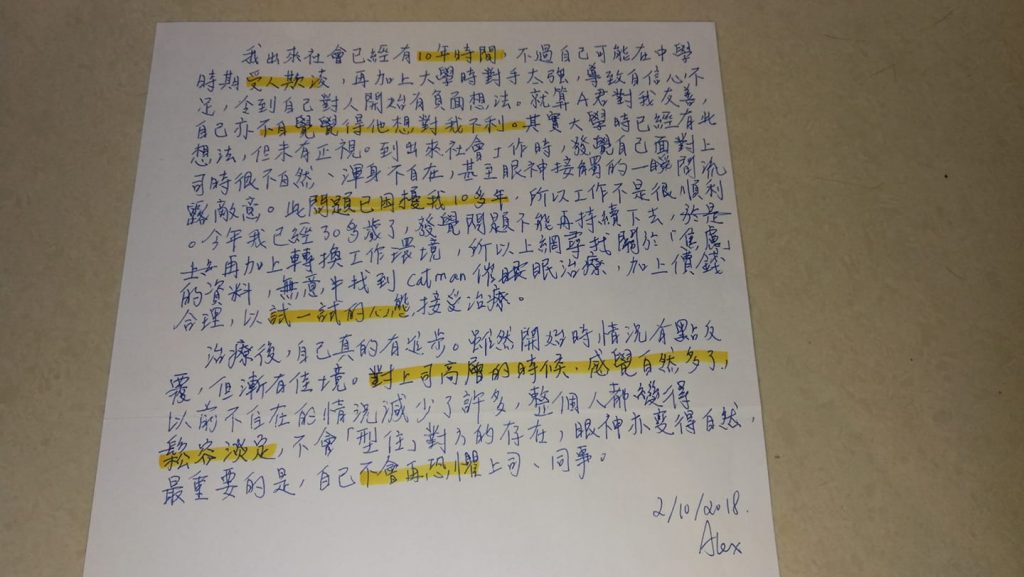 我出來社會已經有10年時間，不過自己可能在中學
時期受人欺凌，再加上大學時對手太強，導致自信心不
足，令到自己對人開始有負面想法。就算A君對我友善，
自己亦不自覺覺得他想對我不利。其實大學時已經有此
想法，但未有正視。到出來社會工作時，發覺自己面對上
司時很不自然、渾身不自在，甚至眼神接觸的一瞬間流
露敵意。此問題已困擾我10多年，所以工作不是很順利
。今年我已經30多歲了，發覺問題不能再持續下去，於是
再加上轉換工作環境，所以上網尋找關於「焦慮」
的資料，無意中找到catman催眠治療，加上價錢
合理，以試一試的心態，接受治療。
治療後，自己真的有進步。雖然開始時情況有點反
覆，但漸有佳境。對上司高層的時候，感覺自然多了，
以前不自在的情況減少了許多，整個人都變得
鬆容淡定，不會「型住」對方的存在，眼神亦變得自然，
最重要的是，自己不會再恐懼上司、同事。
2/10/2018.
Alex